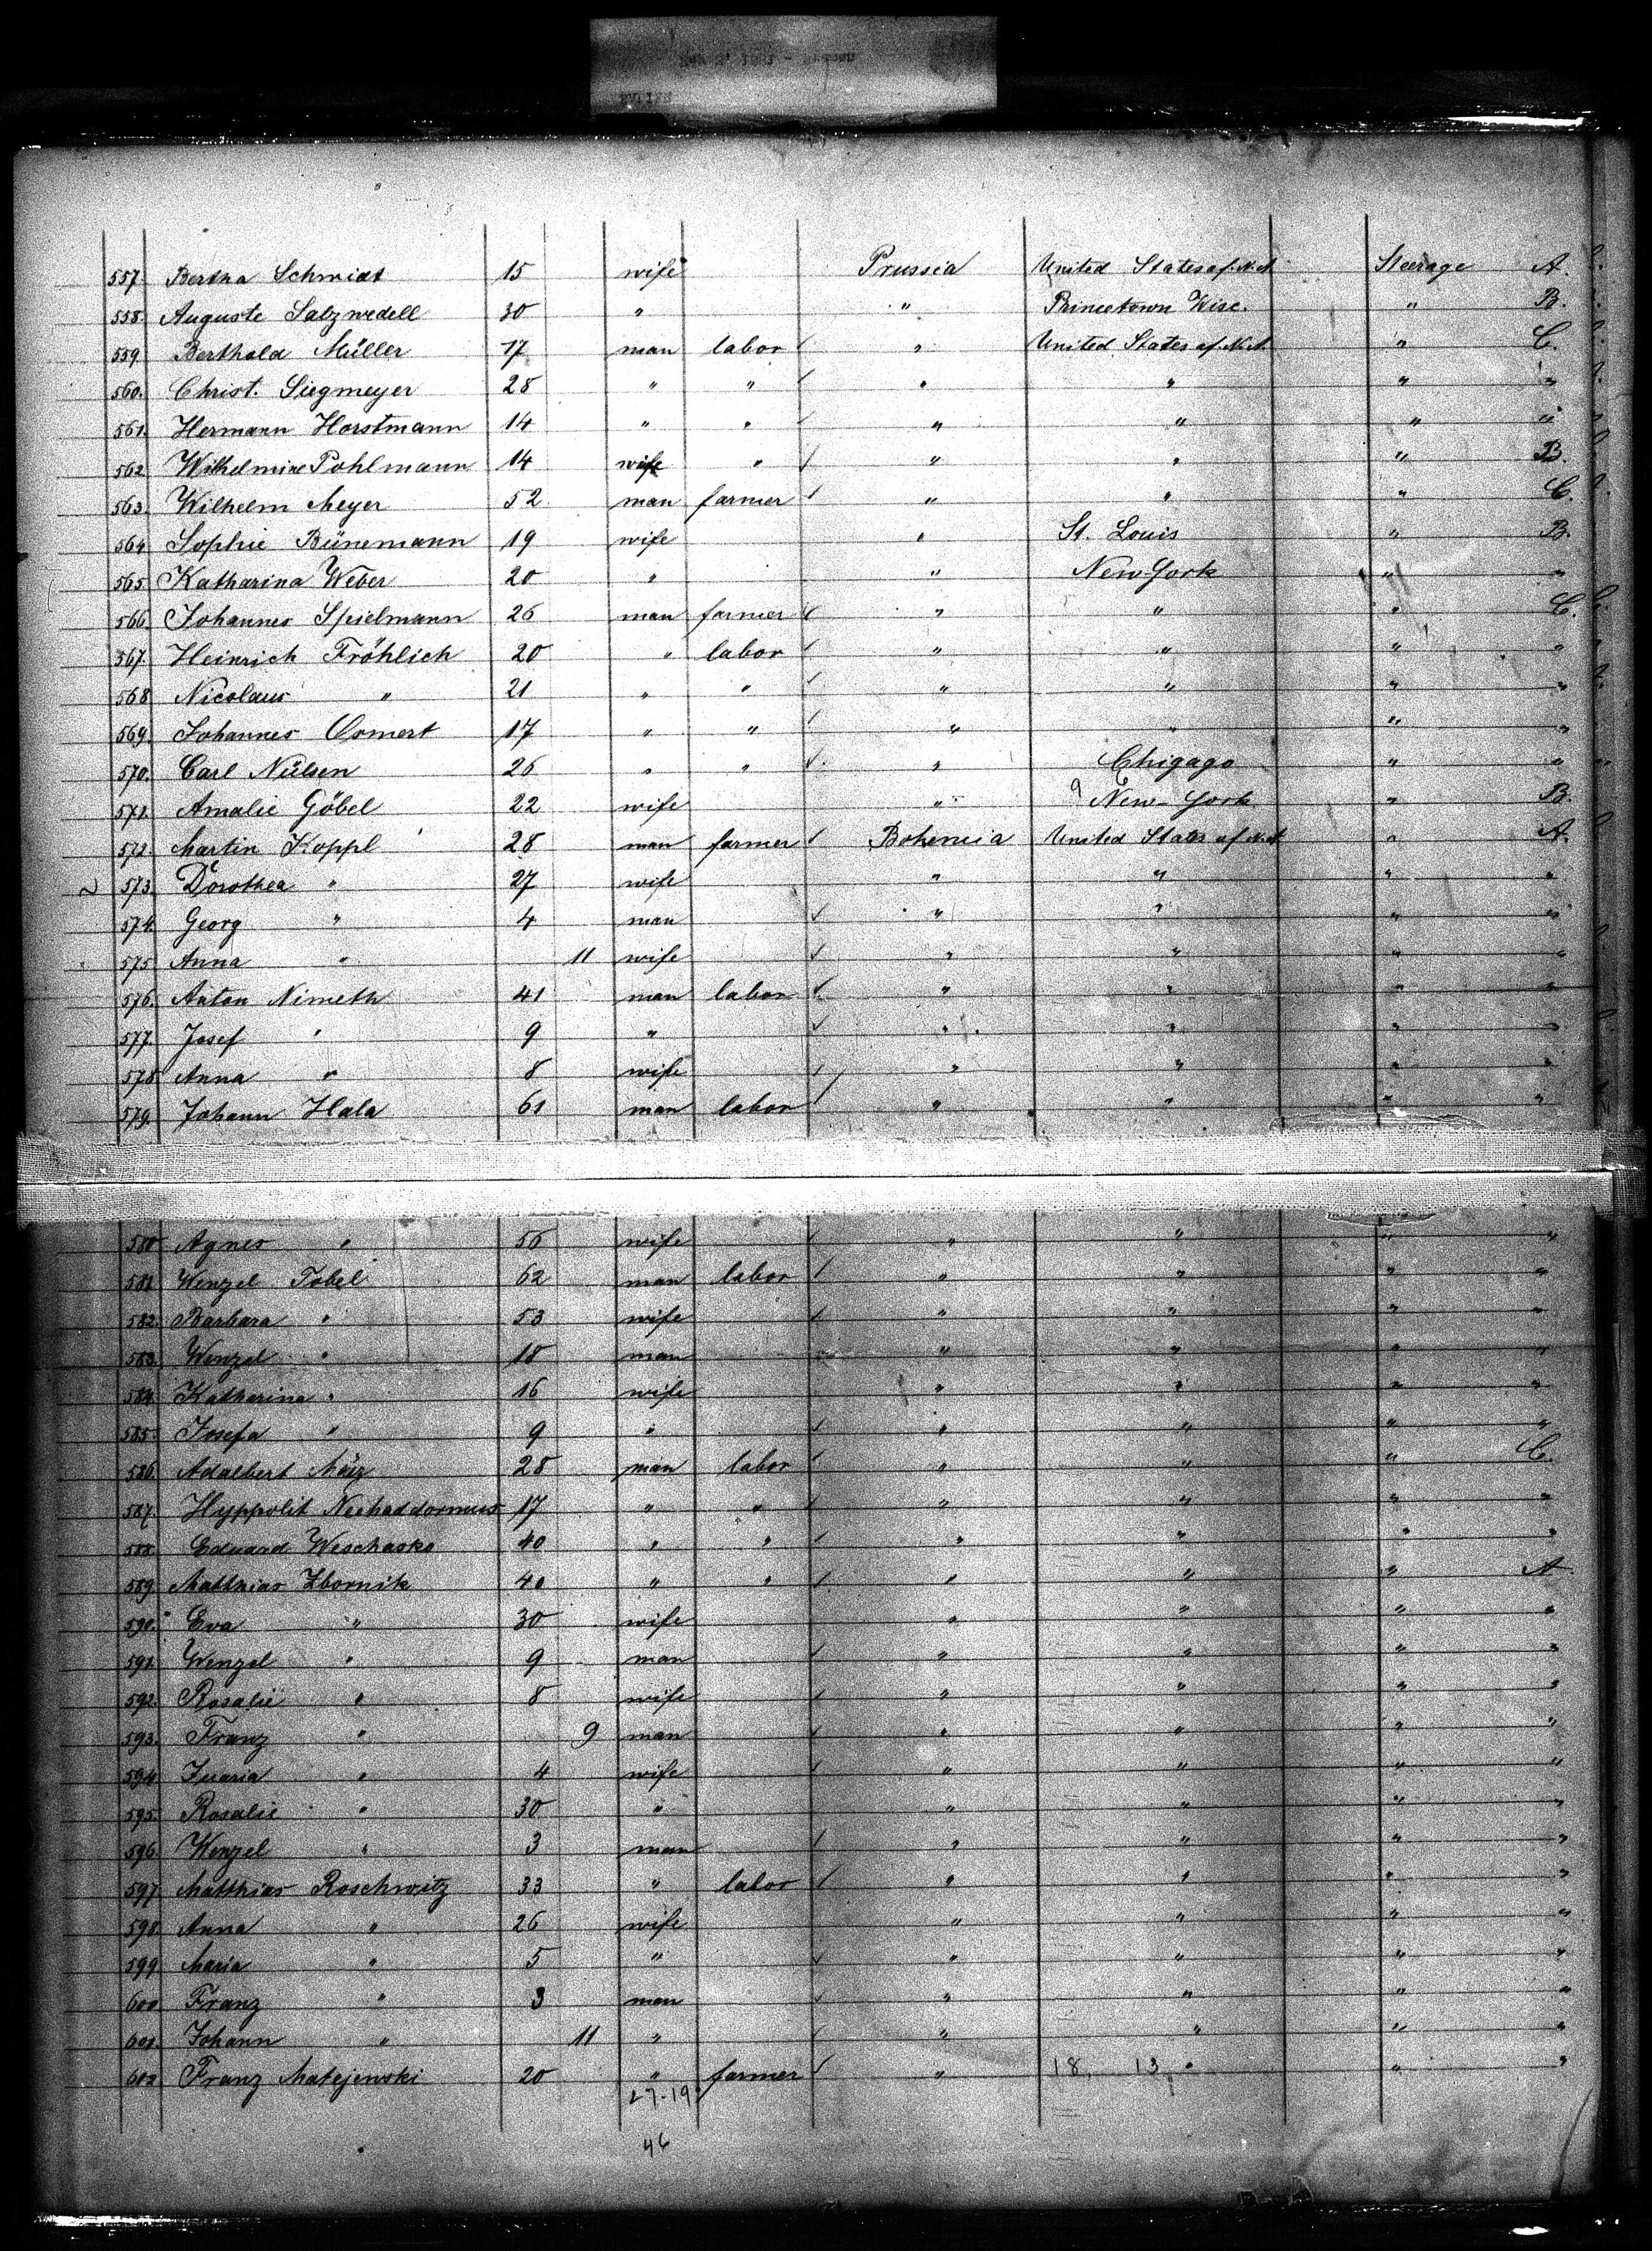 557. Bertha Schmidt 15 wife Prussia United States of N.A. Steerage A.
558. Auguste Salzwedell 30 " " Princetown Wisc. " B.
559. Berthold Müller 17 man labor " United States of N.A. " C.
560. Christ. Siegmeyer 28 " " " " " "
561. Hermann Horstmann 14 " " " " " "
562. Wilhelmine Pohlmann 14 wife " " " " B.
563. Wilhelm Meyer 52 man farmer " " " C.
564. Sophie Bünemann 19 wife " St. Louis " B.
565. Katharina Weber 20 " " New York " "
566. Johannes Spielmann 26 man farmer " " " C.
567. Heinrich Fröhlich 20 " labor " " " "
568. Nicolaus " 21 " " " " " "
569. Johannes 17 " " " " " "
570. Carl Nülsen 26 " " " Chigago " "
571. Amalie Göbel 22 wife " New-York " B.
572. Martin Koppl 28 man farmer Bohemia United States of N.A. " A.
573. Dorothea " 27 wife " " " "
574. Georg " 4 man " " " "
575. Anna " 11 wife " " " "
576. Anton Nimeth 41 man labor " " " "
577. Josef " 9 " " " " "
578. Anna " 8 wife " " " "
579. Johann Hala 61 man labor " " " "
580. Agnes " 56 wife " " " "
581. Wenzel Tobel 62 man labor " " " "
582. Barbara " 53 wife " " " "
583. Wenzel " 18 man " " " "
584. Katharina " 16 wife " " " "
585. Josefa " 9 " " " " "
586. Adalbert 28 man labor " " " C.
587. Hyppolit 17 " " " " " "
588. Eduard Weschasko 40 " " " " " "
589. Matthias Zbornik 40 " " " " " A.
590. Eva " 30 wife " " " "
591. Wenzel " 9 man " " " "
592. Rosalie " 8 wife " " " "
593. Franz " 9 man " " " "
594. " 4 wife " " " "
595. Rosalie " 30 " " " " "
596. Wenzel " 3 man " " " "
597. Matthias Roschwitz 33 " labor " " " "
598. Anna " 26 wife " " " "
599. Maria " 5 " " " " "
600. Franz " 3 man " " " "
601. Johann " 11 " " " " "
602. Franz Matejewski 20 " farmer " 18. 13 " " "
27-19
46